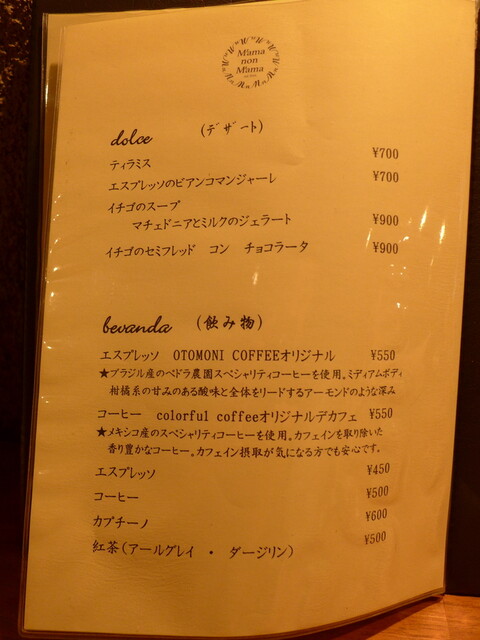 M'ama
non
M'ama
dolce (デザート)
ティラミス ¥700
エスプレッソのビアンコマンジャーレ ¥700
イチゴのスープ
マチェドニアとミルクのジェラート ¥900
イチゴのセミフレッド コン チョコラータ ¥900
bevanda (飲み物)
エスプレッソ OTOMONI COFFEEオリジナル ¥550
★ブラジル産のペドラ農園スペシャリティコーヒーを使用。ミディアムボディ
柑橘系の甘みのある酸味と全体をリードするアーモンドのような深み
コーヒー colorful coffeeオリジナルデカフェ ¥550
★メキシコ産のスペシャリティコーヒーを使用。カフェインを取り除いた
香り豊かなコーヒー。カフェイン摂取が気になる方でも安心です。
エスプレッソ ¥450
コーヒー ¥500
カプチーノ ¥600
紅茶(アールグレイ ・ ダージリン) ¥500